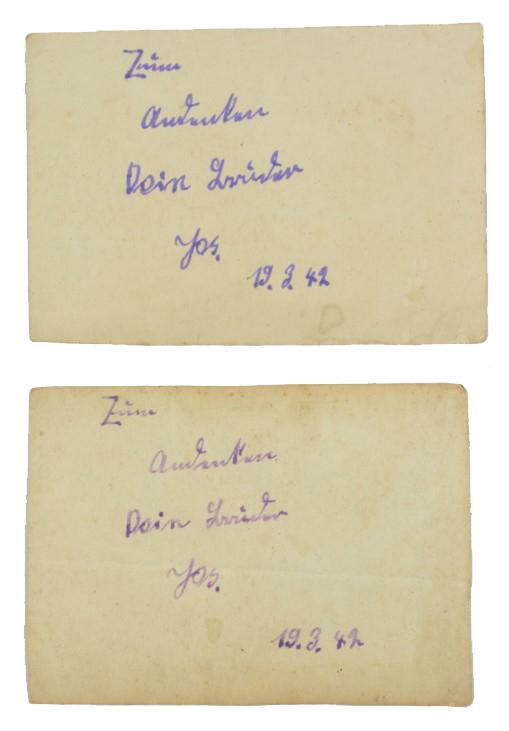 Zum
Andenken
Dein Bruder
Jos.
19. 3. 42
Zum
Andenken
Dein Bruder
Jos.
19. 3. 42